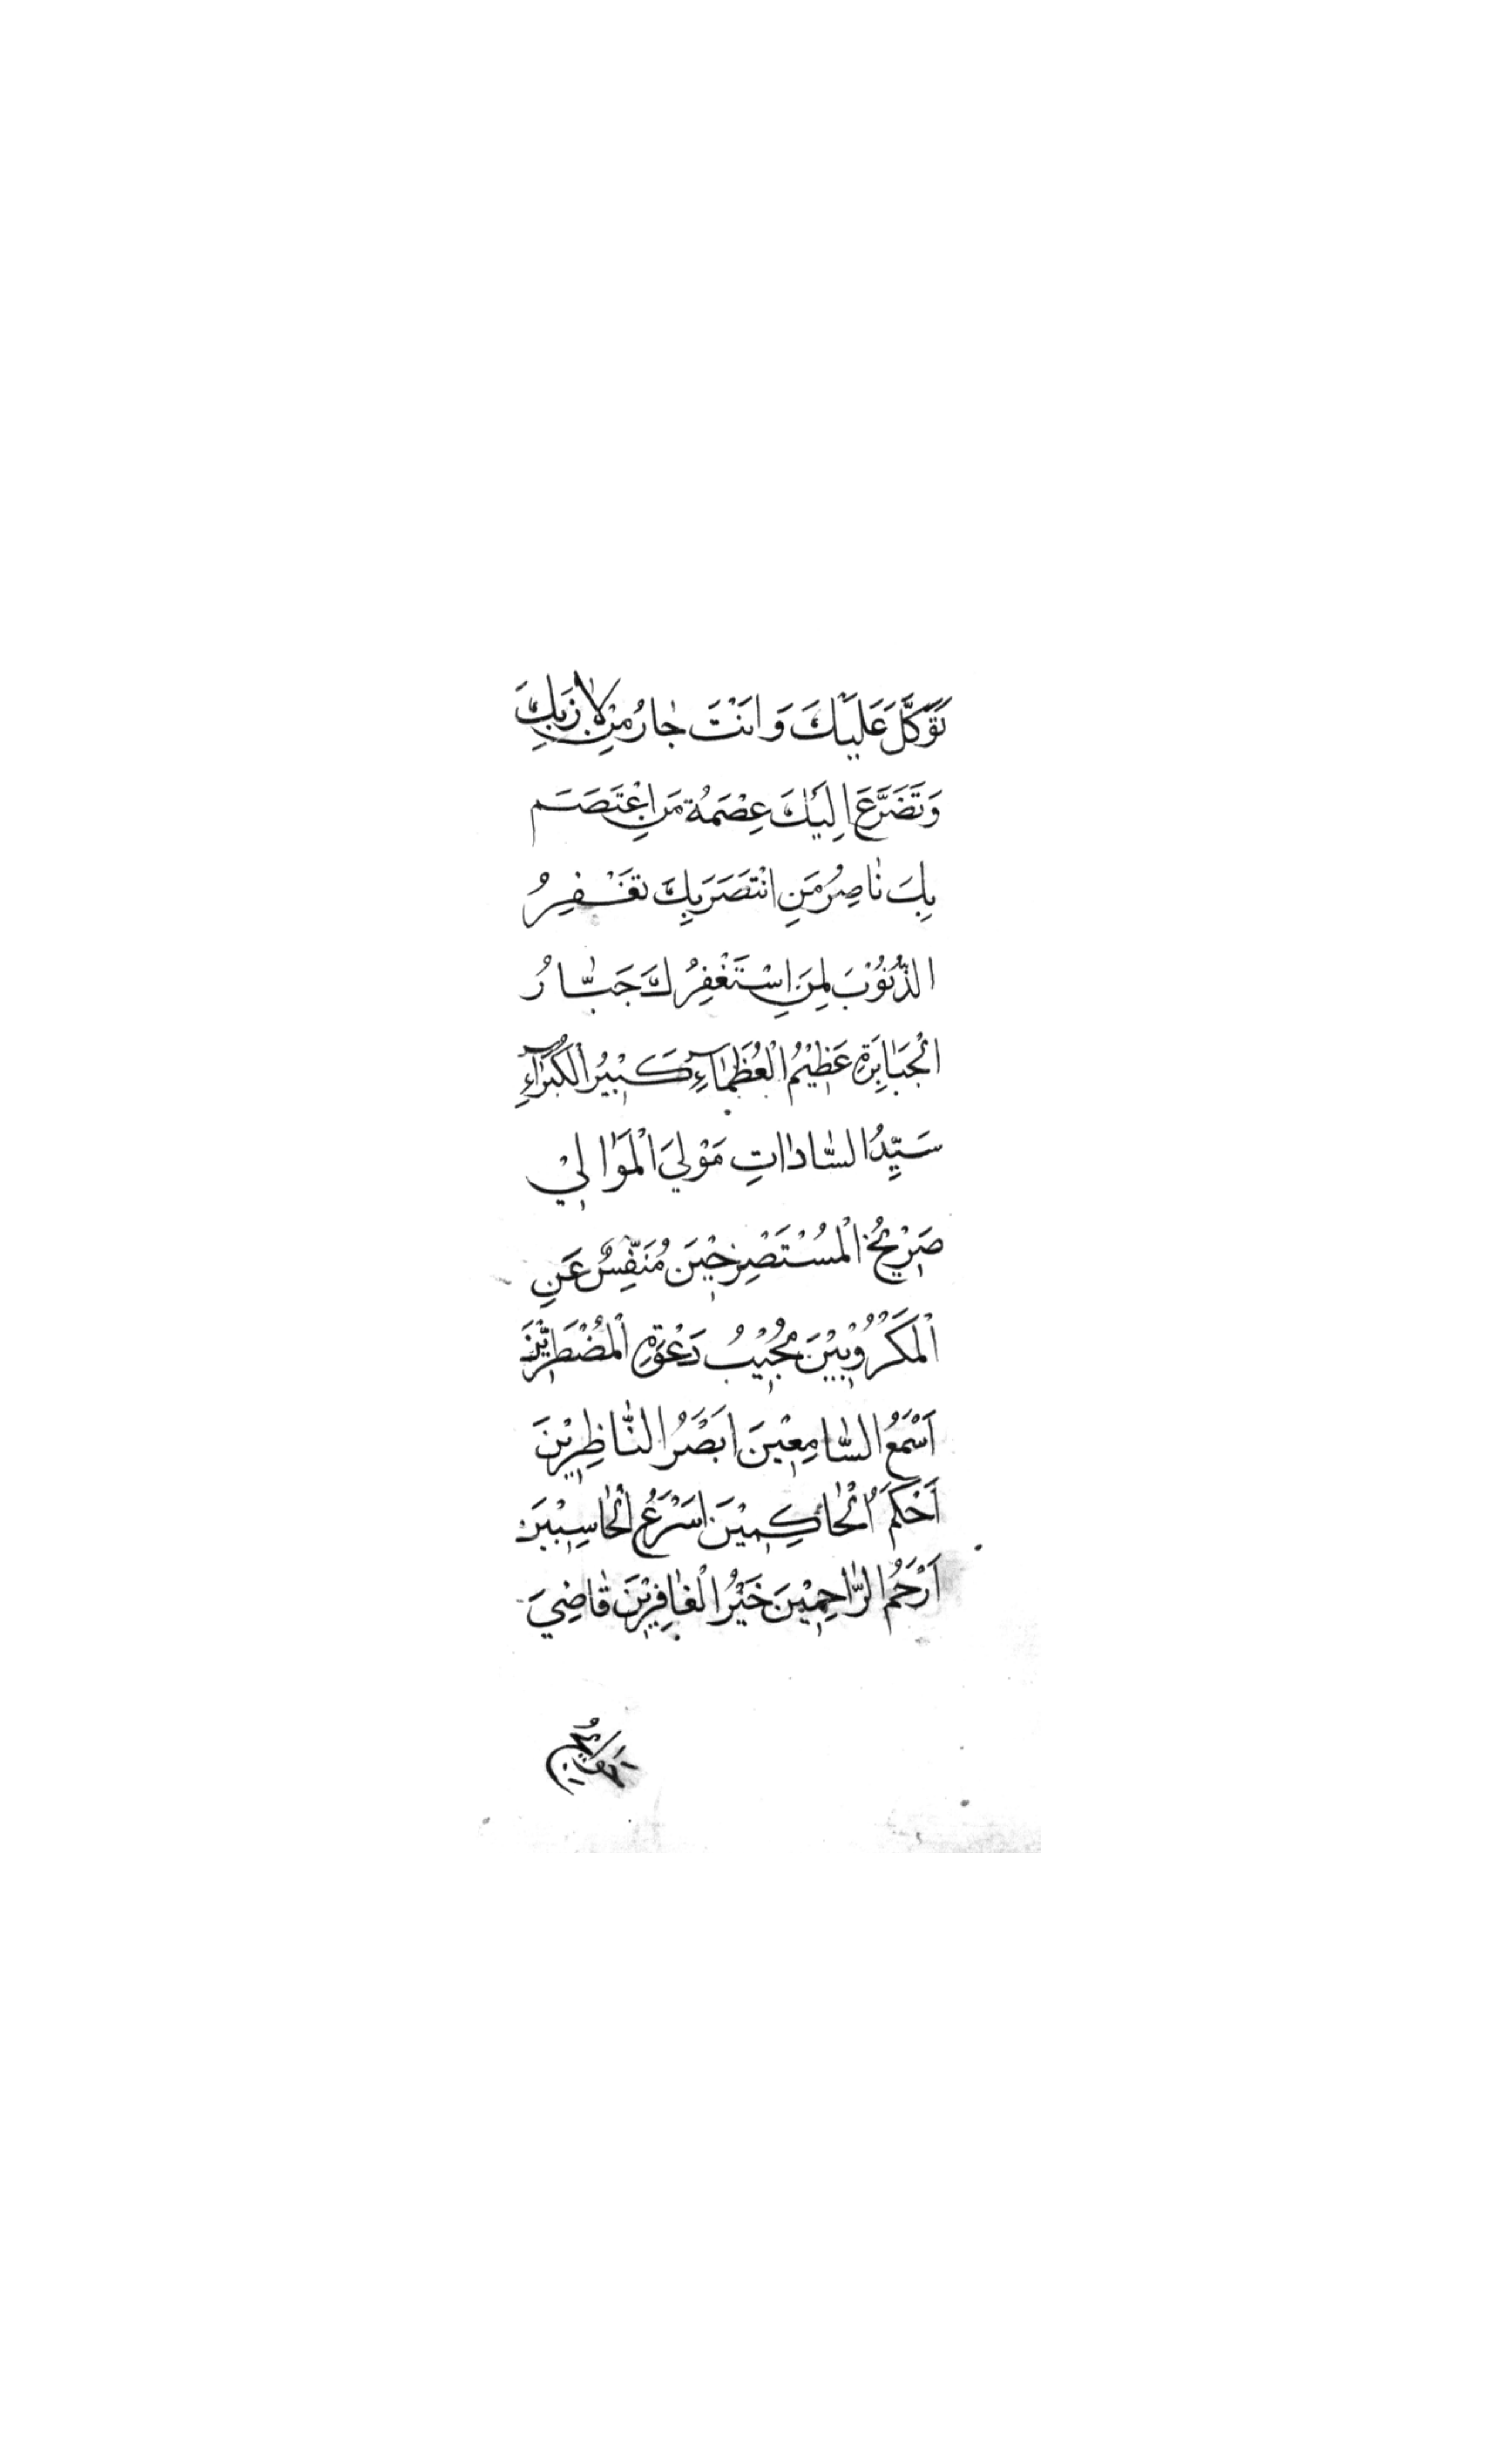 تَوَكَّلَ عَلَيْكَ وَاَنْتَ جَارُ مَنْ لَاذَ بِكَ
وَتَضَرَّعَ اِلَيْكَ عِصْمَةُ مَنِ اعْتَصَمَ
بِكَ نَاصِرُ مَنِ انْتَصَرَ بِكَ تَغْفِرُ
الذُّنُوْبَ لِمَنِ اسْتَغْفَرَكَ جَبَّارُ
الْجَبَابِرَةِ عَظِيْمُ الْعُظَمَآءِ كَبِيْرُ الْكُبَرَآءِ
سَيِّدُ السَّادَاتِ مَوْلَيَ الْمَوَالِيْ
صَرِيْخُ الْمُسْتَصْرِخِيْنَ مُنَفِّسٌ عَنِ
الْمَكْرُوْبِيْنَ مُجِيْبُ دَعْوَةِ الْمُضْطَرِّيْنَ
اَسْمَعُ السَّامِعِيْنَ اَبْصَرُ النَّاظِرِيْنَ
اَحْكَمُ الْحَاكِمِيْنَ اَسْرَعُ الْحَاسِبِيْنَ
اَرْحَمُ الرَّاحِمِيْنَ خَيْرُ الْغَافِرِيْنَ قَاضِيَ